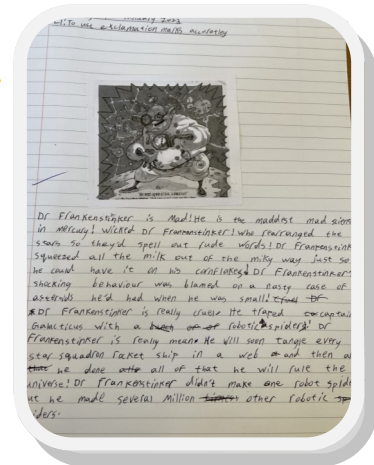 January 2023
WI: To use exclamation marks accurately
Dr Frankenstinker is Mad! He is the maddest mad
in Mercury! Wicked Dr Frankenstinker! who rearranged the
stars so they'd spell out rude words! Dr
squeezed all the milk out of the milky way just so
he could have it on his cornflakes! Dr Frankenstinker's
shocking behaviour was blamed on a nasty case of
asteroids he'd had when he was small!
Dr Frankenstinker is really cruel! He traped captain
Galacticus with a robotic spiders! Dr
Frankenstinker is really mean! He will soon tangle every
star squadron rocket ship in a web and then
he done all of that he will rule the
universe! Dr Frankenstinker didn't make one robot
he made several million other robotic